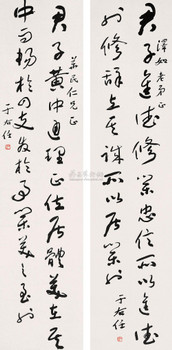 君子進德修業忠信所以進德
也修辭立其誠所以居業也
于右任
君子黃中通理正位居體美在其
中而暢於四支發於事業美之至也
于右任